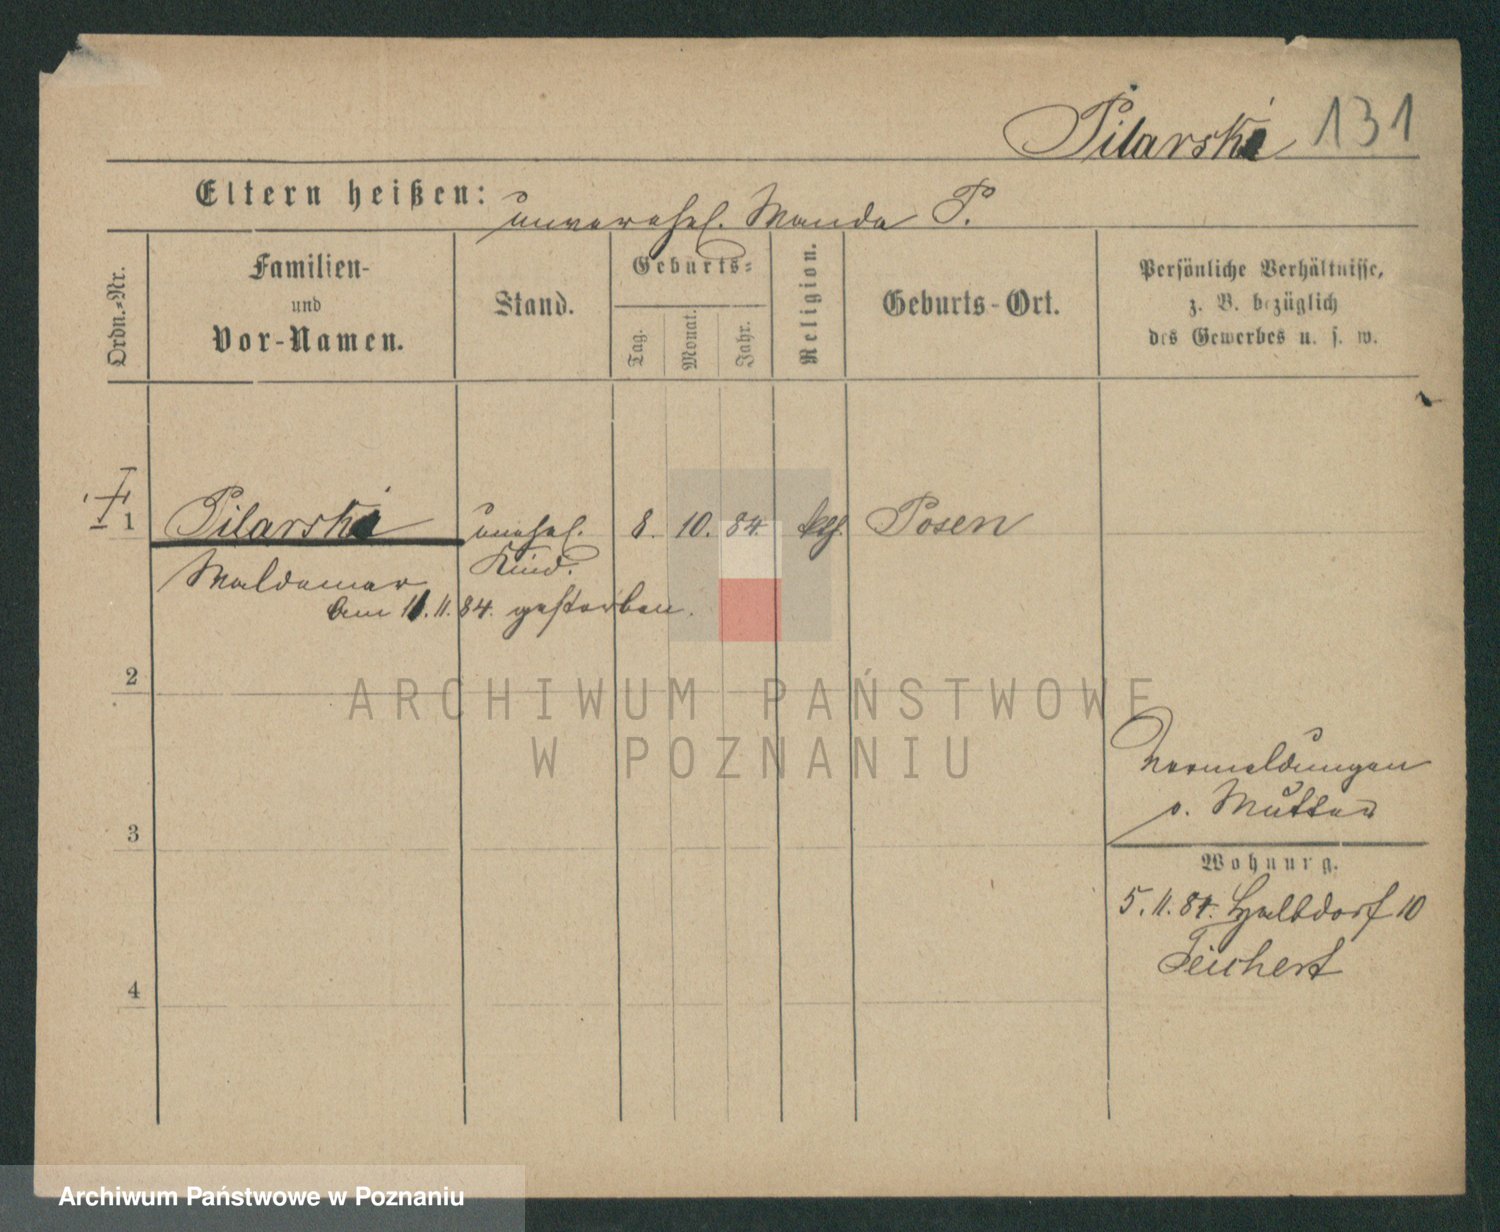 Pilarski 131
Eltern heißen: unverehel. Wanda P.
Ordn.-Nr.
Familien-
und
Vor-Namen.
Stand.
Geburts-
Tag.
Monat.
Jahr.
Religion.
Geburts-Ort.
Persönliche Verhältnisse,
z. B. bezüglich
des Gewerbes u. s. w.
1 Pilarski unehel. 8. 10. 84. kth. Posen
Kind.
Waldemar
am 11. 11. 84. gestorben.
2
ARCHIWUM PAŃSTWOWE
W POZNANIU
3
v. Mutter
Wohnung.
5. 11. 84. Halbdorf 10
Teichert
4
Archiwum Państwowe w Poznaniu